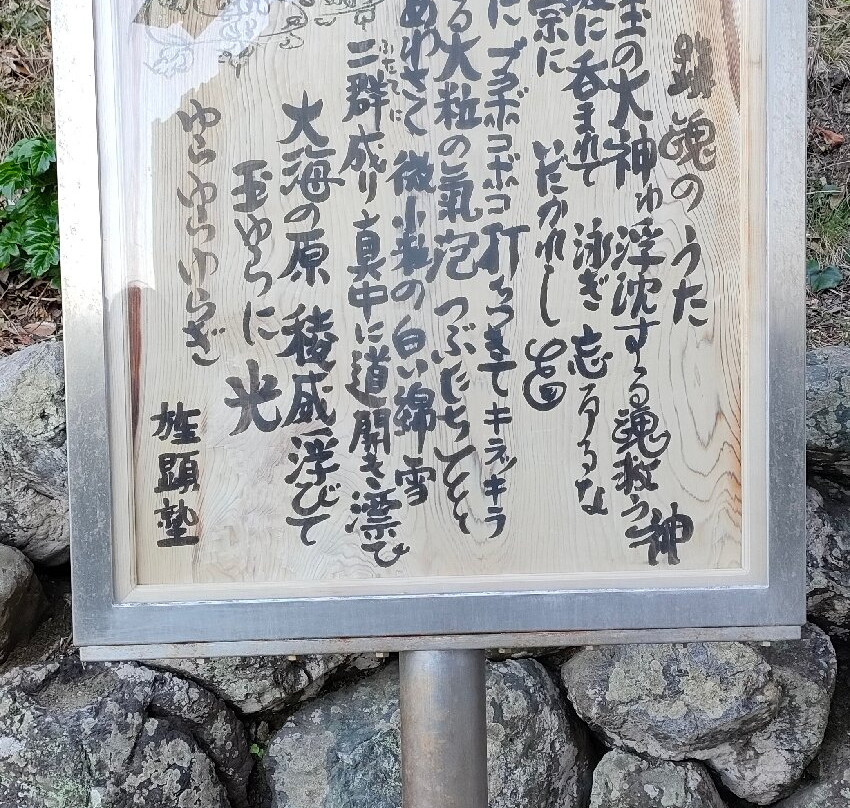 鎮魂のうた
玉の大神わ浮沈する魂救う神
に呑まれて 泳ぎ忘るるな
に いだかれし
に ブクボコボコ打ちつきてキラッキラ
る大粒の氣泡つぶだちてとく
あわさて 微小粒の白い綿雪
二群成り真中に道開き漂ひ
ふたてに
大海の原 稜威浮びて
玉ゆらに光
ゆらゆらゆらぎ
顕塾